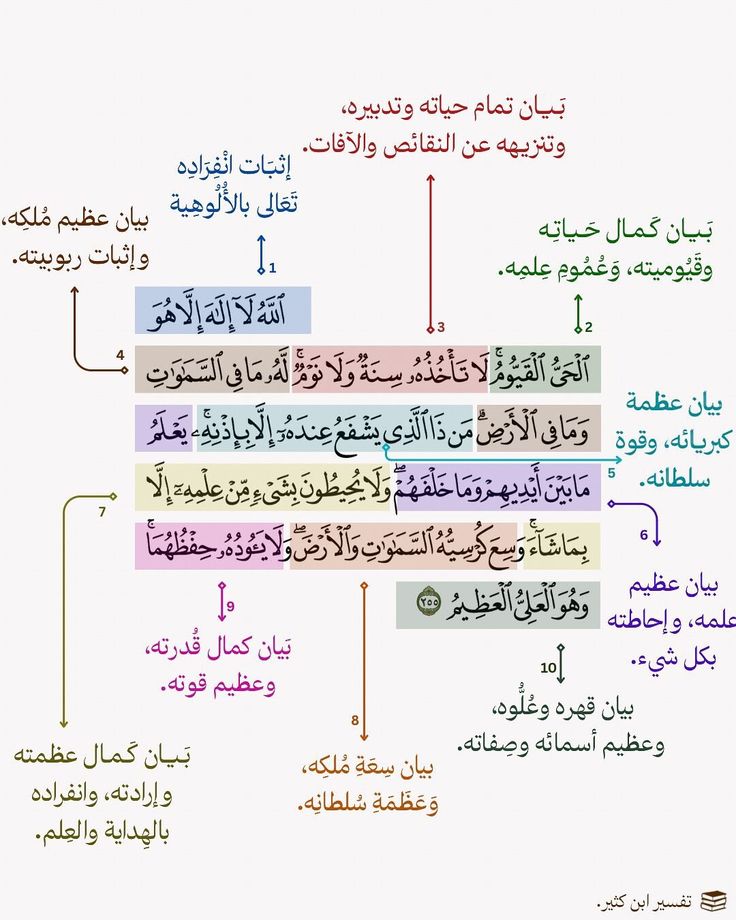 بَيان تمام حياته وتدبيره،
وتنزيهه عن النقائص والآفات.
إثبَات انْفِرَادِه
تَعَالى بالأُلُوهِية
بيان عظيم مُلكِه،
وإثبات ربوبيته.
بَيان كَمال حَياتِه
وقَيُوميته، وَعُمُومِ عِلمِه.
1
2
3
ٱللَّهُ لَآ إِلَٰهَ إِلَّا هُوَ
4
ٱلْحَىُّ ٱلْقَيُّومُ ۚ لَا تَأْخُذُهُۥ سِنَةٌ وَلَا نَوْمٌ ۚ لَّهُۥ مَا فِى ٱلسَّمَٰوَٰتِ
وَمَا فِى ٱلْأَرْضِ ۗ مَن ذَا ٱلَّذِى يَشْفَعُ عِندَهُۥٓ إِلَّا بِإِذْنِهِۦ ۚ يَعْلَمُ
مَا بَيْنَ أَيْدِيهِمْ وَمَا خَلْفَهُمْ ۖ وَلَا يُحِيطُونَ بِشَىْءٍ مِّنْ عِلْمِهِۦٓ إِلَّا
بِمَا شَآءَ ۚ وَسِعَ كُرْسِيُّهُ ٱلسَّمَٰوَٰتِ وَٱلْأَرْضَ ۖ وَلَا يَـُٔودُهُۥ حِفْظُهُمَا ۚ
وَهُوَ ٱلْعَلِىُّ ٱلْعَظِيمُ ٢٥٥
بيان عظمة
كبريائه، وقوة
سلطانه.
5
6
7
بيان عظيم
علمه، وإحاطته
بكل شيء.
9
بَيان كمال قُدرته،
وعظيم قوته.
10
بيان قهره وعُلُّوه،
وعظيم أسمائه وصِفاته.
8
بيان سِعَةِ مُلكِه،
وَعَظَمَةِ سُلطانِه.
بَيان كَمال عظمته
وإرادته، وانفراده
بالهِداية والعِلم.
تفسير ابن كثير.